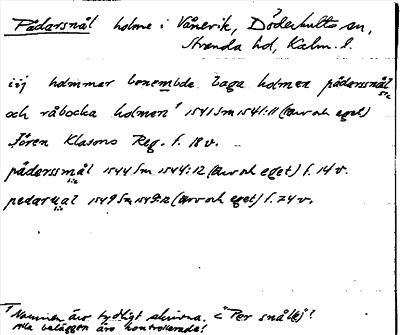 Pådarsnål holme i Vånevik, Döderhults sn,
Stranda hd, Kalm. l.
iiij holmmer benembde baga holmen pådarssnål
sic
och råbocka holmen¹ 1541 Sm 1541:11 (arv och eget)
Jören Klasons Reg. f. 18 v.
pådarssmål 1544 Sm 1544:12 (arv och eget) f. 14 v.
sic
pedarual 1549 Sm 1549:12 (arv och eget) f. 24 v.
sic
¹ Namnen äro tydligt skrivna. < "Per snål(e)"!
Alla beläggen äro kontrollerade!